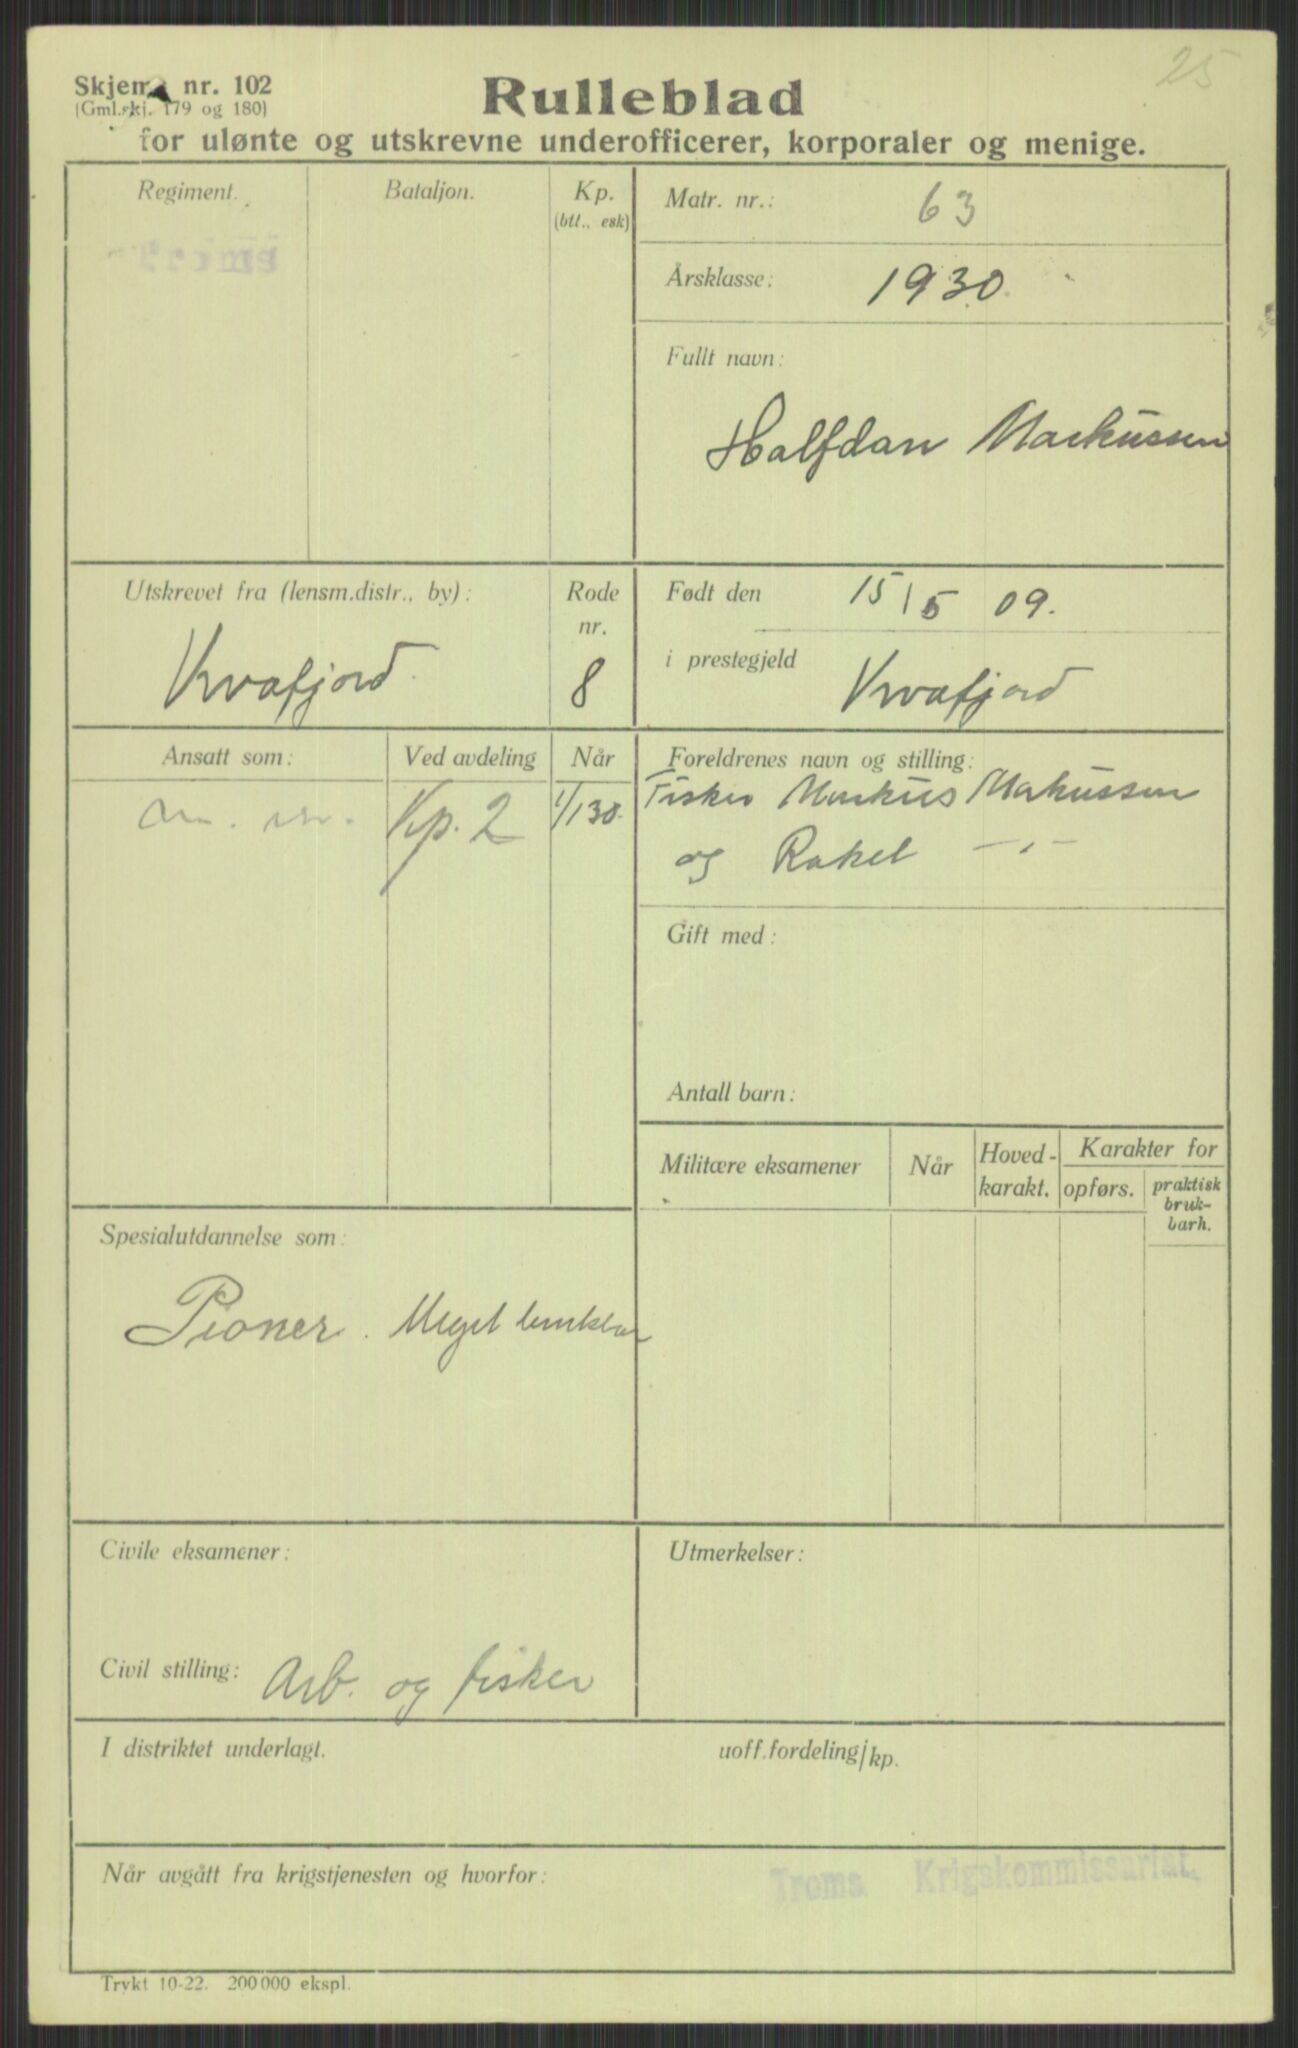 25
Skjema nr. 102
(Gml.skj. 179 og 180)
Rulleblad
for ulønte og utskrevne underofficerer, korporaler og menige.
Regiment.
Bataljon.
Kp.
(btl., esk)
Troms
Matr. nr.: 63
Årsklasse: 1930.
Fullt navn:
Halfdan Markussen
Utskrevet fra (lensm.distr., by):
Kvæfjord
Rode
nr.
8
Født den 15/5 09.
i prestegjeld Kvæfjord
Ansatt som:
Ved avdeling
Når
Kp. 2
1/1 30.
Foreldrenes navn og stilling:
Fisker Markus Markussen
og Rakel —„—
Gift med:
Antall barn:
Militære eksamener
Når
Hoved-
karakt.
Karakter for
opførs.
praktisk
bruk-
barh.
Spesialutdannelse som:
Pioner. Meget brukbar
Civile eksamener:
Civil stilling: Arb. og fisker
Utmerkelser:
I distriktet underlagt.
uoff.fordeling/kp.
Når avgått fra krigstjenesten og hvorfor:
Troms Krigskommissariat.
Trykt 10-22. 200 000 ekspl.